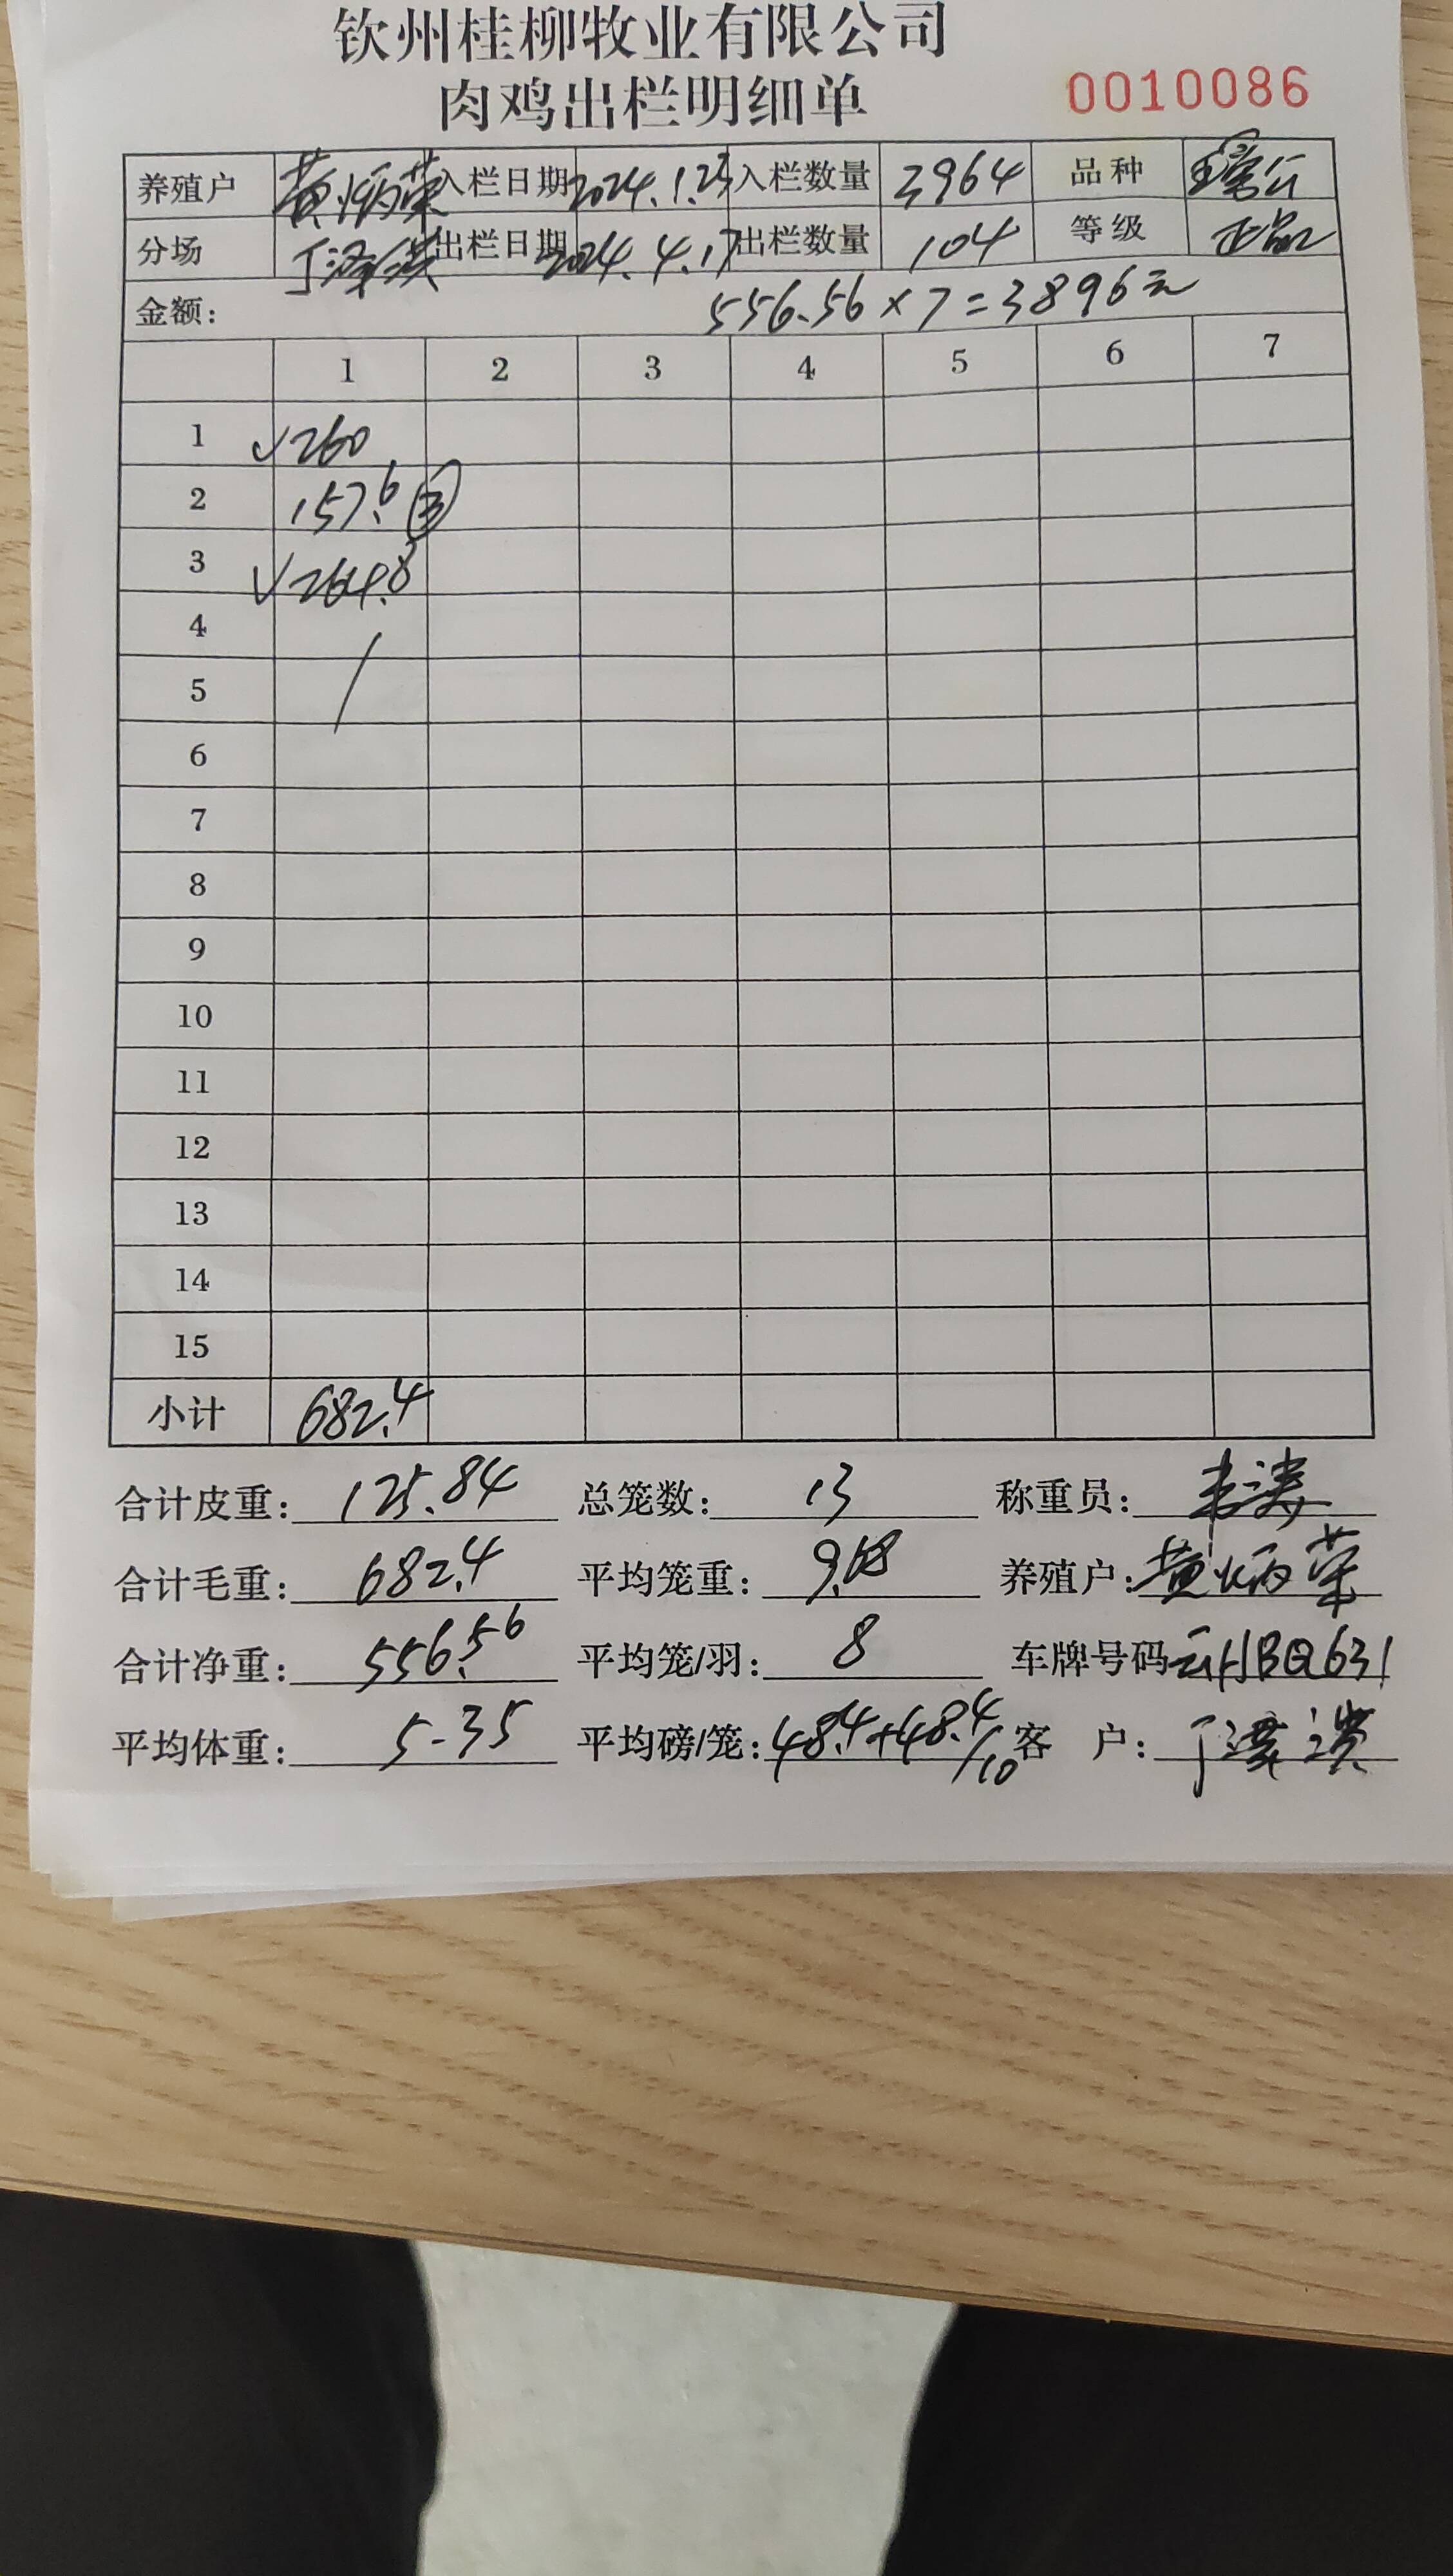 钦州桂柳牧业有限公司
肉鸡出栏明细单 0010086
养殖户 黄炳荣 入栏日期 2024.1.23 入栏数量 3964 品种
分场 出栏日期 2024.4.17 出栏数量 104 等级 正品
金额: 556.56×7=3896元
1 2 3 4 5 6 7
1 √260
2 157.6 ③
3 √264.8
4
5
6
7
8
9
10
11
12
13
14
15
小计 682.4
合计皮重: 125.84 总笼数: 13 称重员:
合计毛重: 682.4 平均笼重: 9.68 养殖户: 黄炳荣
合计净重: 556.56 平均笼/羽: 8 车牌号码
平均体重: 5.35 平均磅/笼: 48.4+48.4/10 客 户: